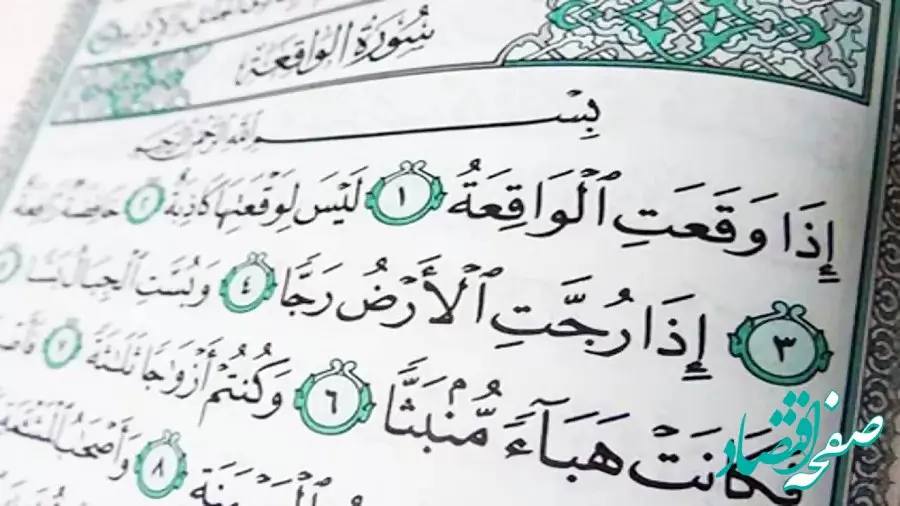 سُورَةُ الوَاقِعَة
بِسْمِ اللَّهِ الرَّحْمَٰنِ الرَّحِيمِ
إِذَا وَقَعَتِ ٱلْوَاقِعَةُ ١ لَيْسَ لِوَقْعَتِهَا كَاذِبَةٌ ٢ خَافِضَةٌ رَّافِعَةٌ
٣ إِذَا رُجَّتِ ٱلْأَرْضُ رَجًّا ٤ وَبُسَّتِ ٱلْجِبَالُ بَسًّا
فَكَانَتْ هَبَآءً مُّنۢبَثًّا ٦ وَكُنتُمْ أَزْوَٰجًا ثَلَٰثَةً ٧
٨ وَأَصْحَٰبُ
صفحه اقتصاد